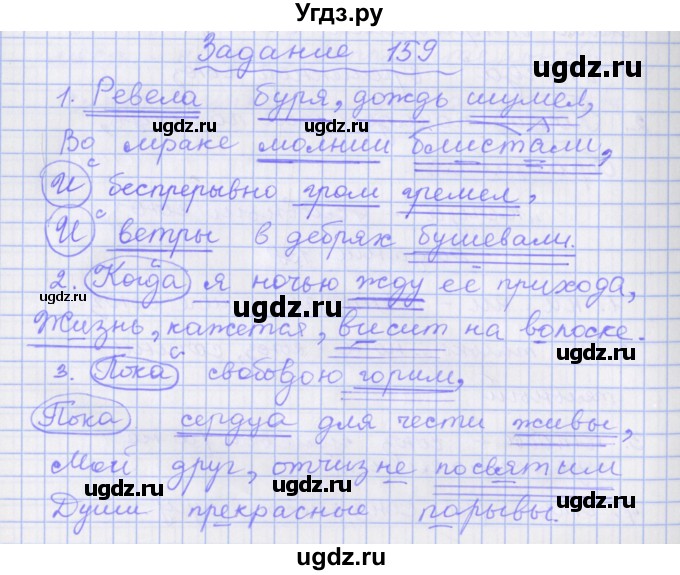 Угдз.ру
Задание 159
1. Ревела буря, дождь шумел,
Во мраке молнии блистали,
И беспрерывно гром гремел,
И ветры в дебрях бушевали.
2. Когда я ночью жду её прихода,
Жизнь, кажется, висит на волоске.
3. Пока свободою горим,
Пока сердца для чести живы,
Мой друг, отчизне посвятим
Души прекрасные порывы.
ugdz.ru
ugdz.ru
ugdz.ru
ugdz.ru
ugdz.ru
ugdz.ru
ugdz.ru
ugdz.ru
ugdz.ru
ugdz.ru
ugdz.ru
ugdz.ru